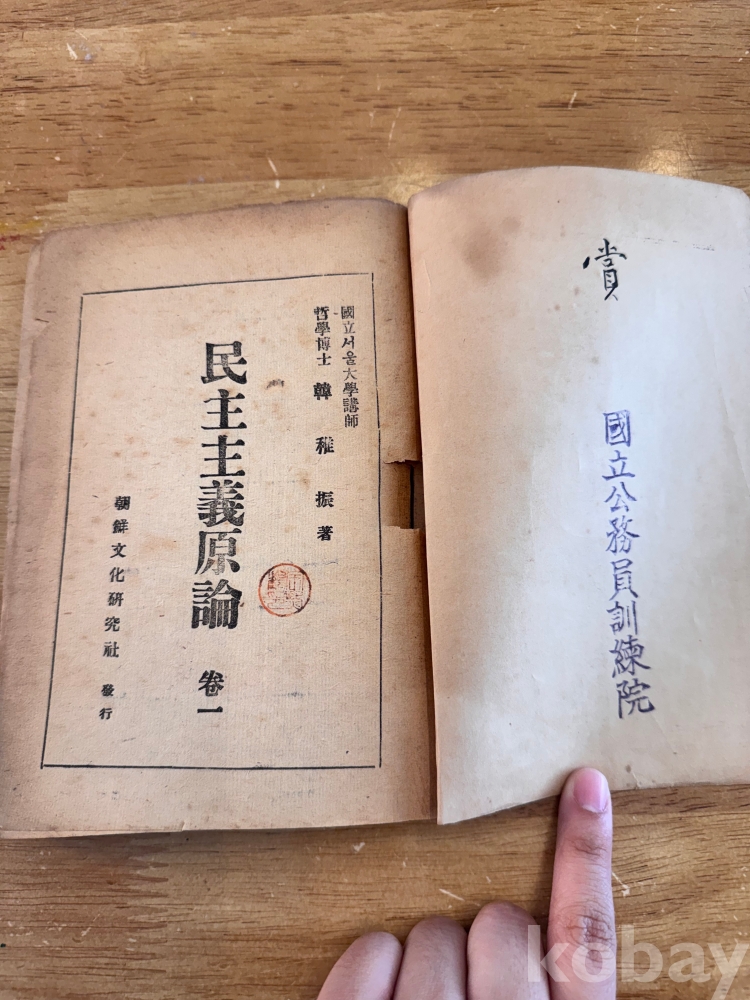 賞
國立公務員訓練院
國立서울大學講師
哲學博士 韓稚振著
民主主義原論 卷一
朝鮮文化硏究社 發行
kobay